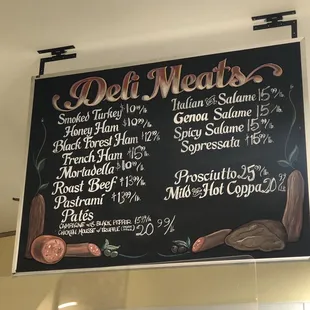 Deli Meats
Smoked Turkey $10.99/lb
Honey Ham $10.99/lb
Black Forest Ham $12.99/lb
French Ham $15.99/lb
Mortadella $10.99/lb
Roast Beef $13.99/lb
Pastrami $13.99/lb
Patés
Campagne with Black Pepper
Chicken Mousse w/ Truffle 20.99/lb
Italian Salame 15.99/lb
Genoa Salame 15.99/lb
Spicy Salame 15.99/lb
Sopressata 15.99/lb
Prosciutto 25.99/lb
Mild Hot Coppa 20.99/lb